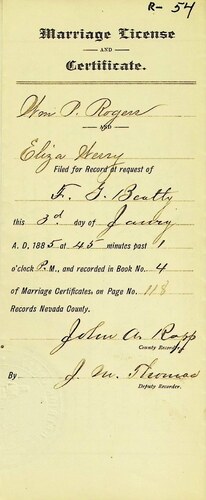 R- 54
Marriage License
AND
Certificate.
Wm P. Rogers
AND
Eliza Werry
Filed for Record at request of
F. G. Beatty
this 3d. day of Janry
A. D. 1885 at 45 minutes past 1
o'clock P. M., and recorded in Book No. 4
of Marriage Certificates, on Page No. 118
Records Nevada County.
John A. Rapp
County Recorder.
By J. M. Thomas
Deputy Recorder.